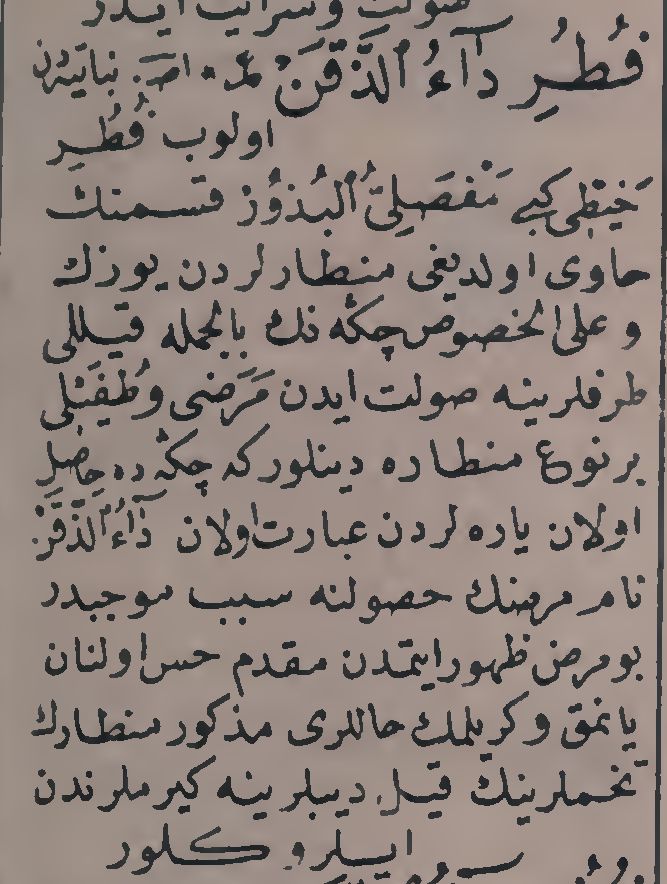 صولت و سرایت ایدر
فُطُرِ دَآءُ الذَّقَنْ امر. نباتیەدن
اولوب فُطُرِ
خَیْطِی کبی مَفْصَلِیُّ الْبُذُوْرْ قسمنك
حاوی اولدیغی منطارلردن یوزك
و علی الخصوص چکەنك بالجمله قیللی
طرفلرینه صولت ایدن مَرَضِی و طُفَیْلِی
برنوع منطاره دینلورکه چکەده حاصل
اولان یارەلردن عبارت اولان دَآءُ الذَّقَنْ
نام مرضك حصولنه سبب موجبدر
بومرض ظهور ایتمدن مقدم حس اولنان
یانمق و کریلمك حاللری مذکور منطارك
تخملرینك قیل دیبلرینه کیرملرندن
ایلرو کلور